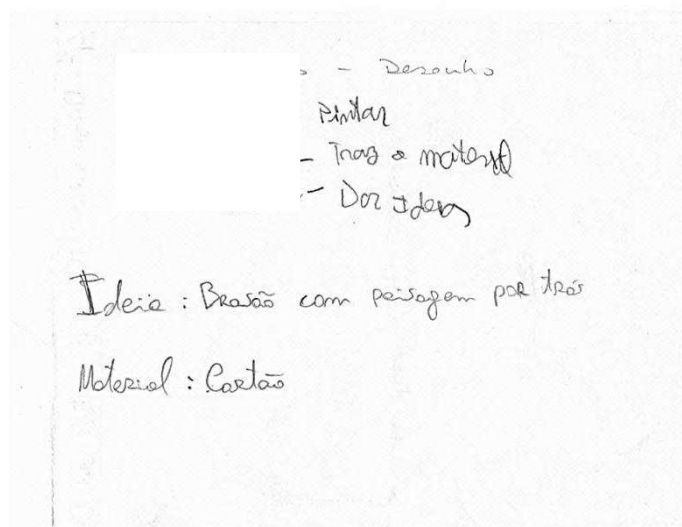 - Desenho
Pintar
- Traz o material
- Dar Ideias
Ideia : Brasão com paisagem por trás
Material : Cartão